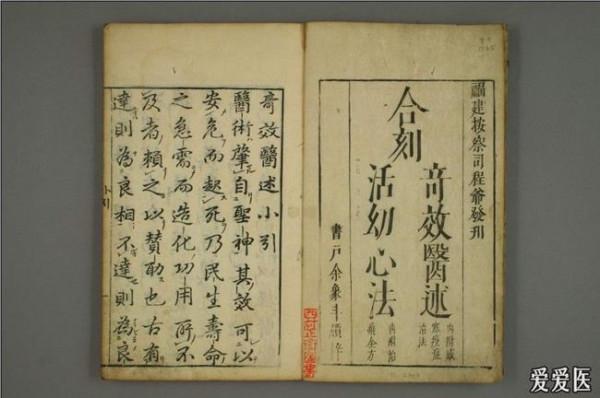 福建按察司程爺發刊
合刻
奇效醫述
活幼心法
書戶余象斗
奇效醫述小引
醫術肇自聖神其效可以
安危而起死乃民生壽命
之急需而造化功用所不
及者賴之以贊助也古有
達則為良相不達則為良
小引
爱爱医